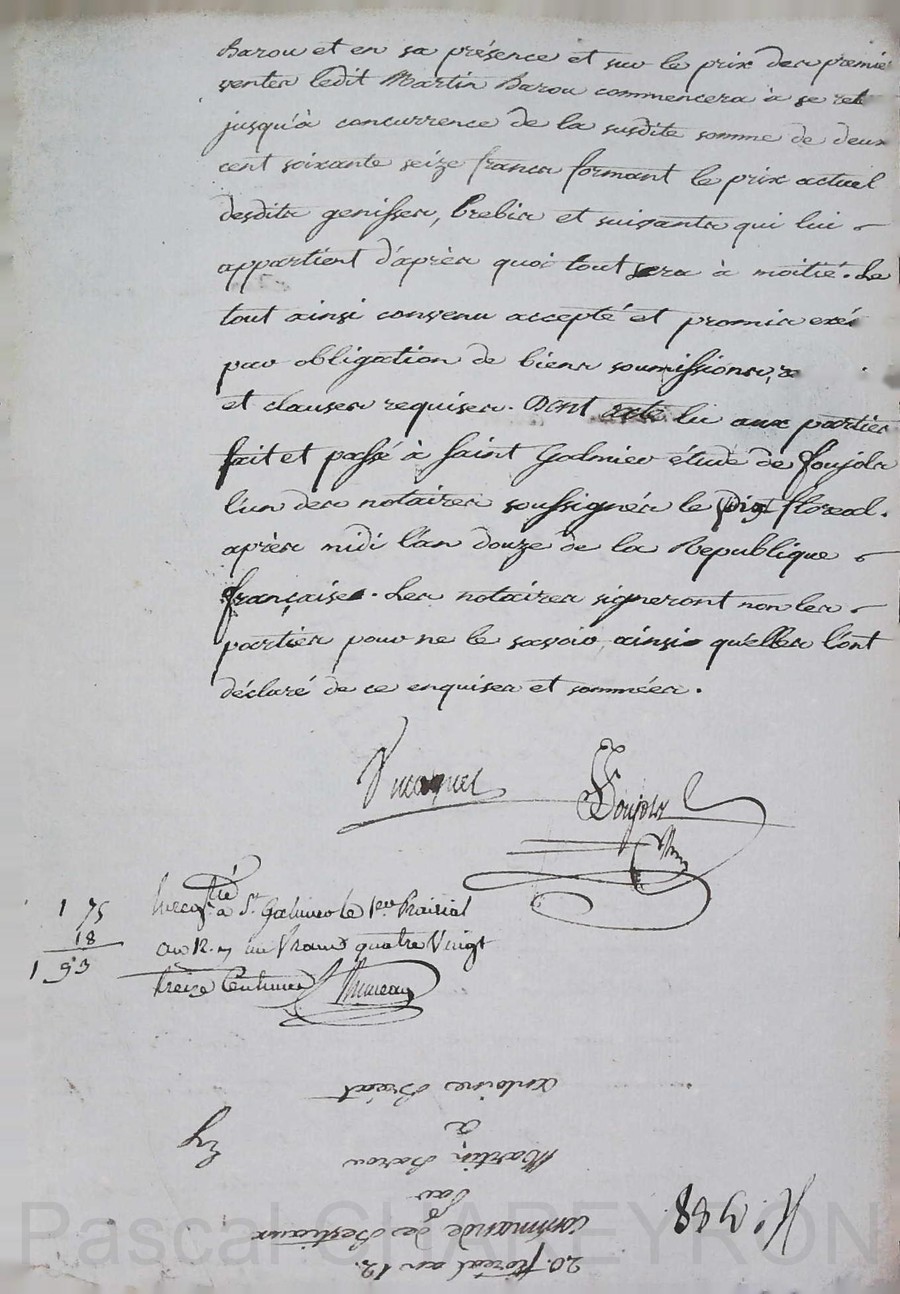 Barou et en sa présence et sur le prix des premie
ventes ledit Martin Barou commencera à se ret
jusqu'à concurrence de la susdite somme de deux
cent soixante seize francs formant le prix actuel
desdits genisses, brebis et suivants qui lui
appartient d'après quoi tout sera à moitié. Le
tout ainsi convenu accepté et promis exé
par obligation de biens soumissions, &
et clauses requises. Dont acte lu aux parties
fait et passé à Saint Galmier étude de Foujols
l'un des notaires soussignés le floreal.
après midi l'an douze de la Republique
française. Les notaires signeront non les
parties pour ne le savoir ainsi qu'elles l'ont
déclaré de ce enquises et sommées.
Foujols
1 75
18
1 93
à St. Galmier le 1er Prairial
an 12. un Franc quatre Vingt
treize Centimes
20. floréal an 12.
commande de Bestiaux
par
Martin Barou
à
Antoine
N°. 388
Pascal CHAREYRON